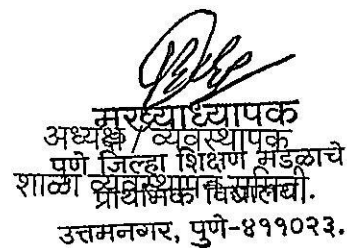 मुख्याध्यापक
अध्यक्ष / व्यवस्थापक
पुणे जिल्हा शिक्षण मंडळाचे
शाळा व्यवस्थापन समिती
प्राथमिक विद्यालय.
उत्तमनगर, पुणे-४११०२३.